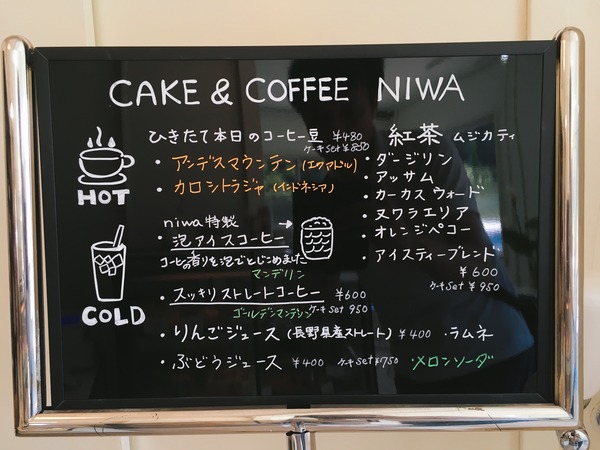 CAKE & COFFEE NIWA
ひきたて本日のコーヒー豆 ¥480
ケーキset ¥850
・アンデスマウンテン(エクアドル)
・カロシトラジャ(インドネシア)
HOT
niwa特製
・泡アイスコーヒー
コーヒーの香りを泡でとじこめました
マンデリン
・スッキリストレートコーヒー ¥600
ゴールデンマンデリン ケーキset 950
COLD
・りんごジュース(長野県産ストレート) ¥400 ・ラムネ
・ぶどうジュース ¥400 ケーキset ¥750 ・メロンソーダ
紅茶 ムジカティ
・ダージリン
・アッサム
・カーカスウォード
・ヌワラエリア
・オレンジペコー
・アイスティーブレンド
¥600
ケーキset ¥950